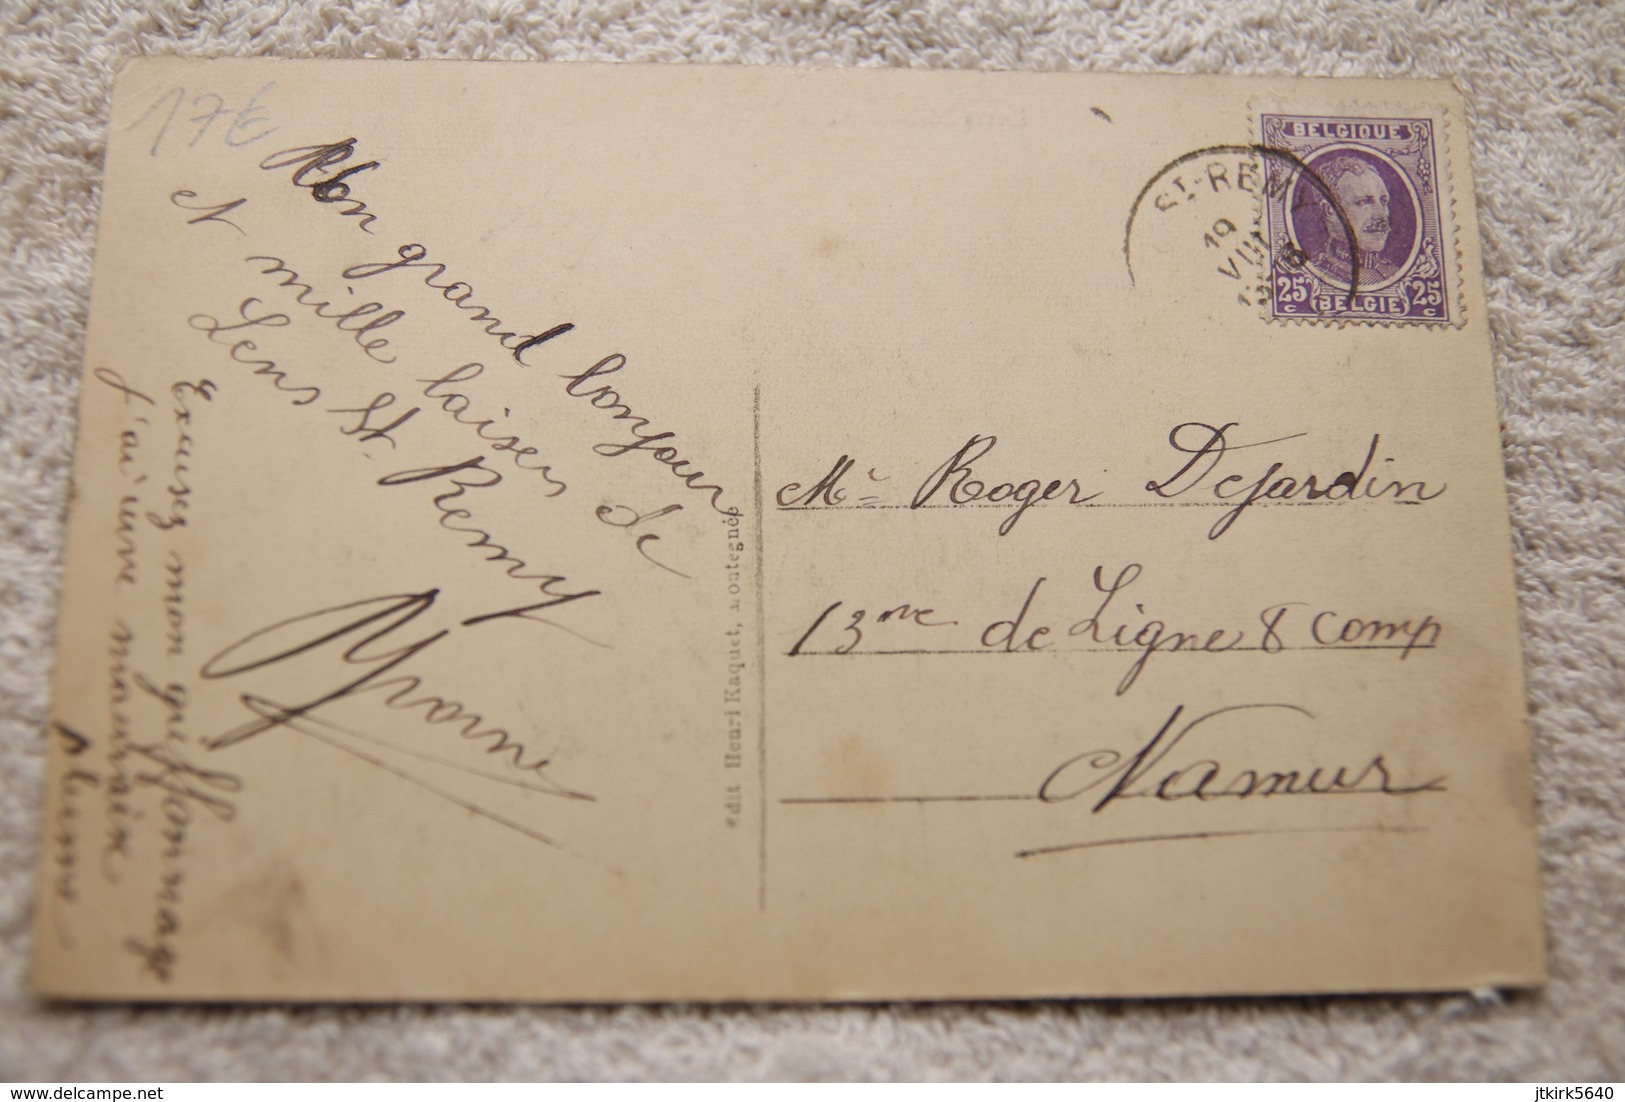 17€
Mon grand bonjour
et mille baisers de
Lens St. Remy
Yvonne
Excusez mon griffonnage
j'ai une mauvaise
plume
edit Henri Kaquet, Montegnée
ST-REMY
19
VIII
BELGIQUE
25 BELGIE 25
c c
Mr Roger Dejardin
13me de Ligne 8 comp
Namur
delcampe.net
jtkirk5640